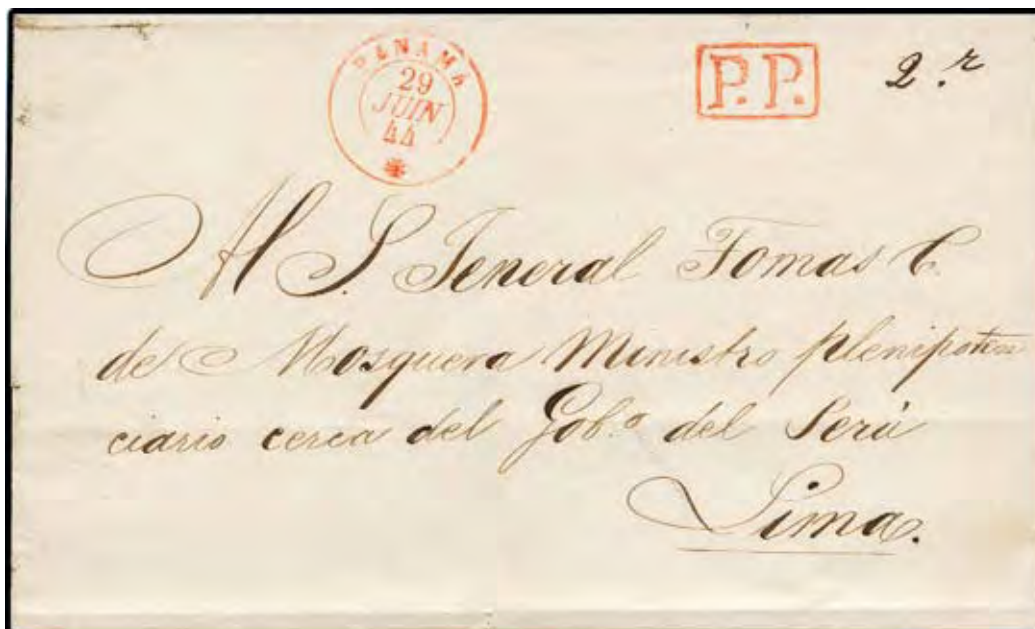 PANAMA
29
JUIN
44
P.P.
2.r
Al S. Jeneral Tomas C.
de Mosquera Ministro plenipoten
ciario cerca del Gob.o del Perú
Lima.